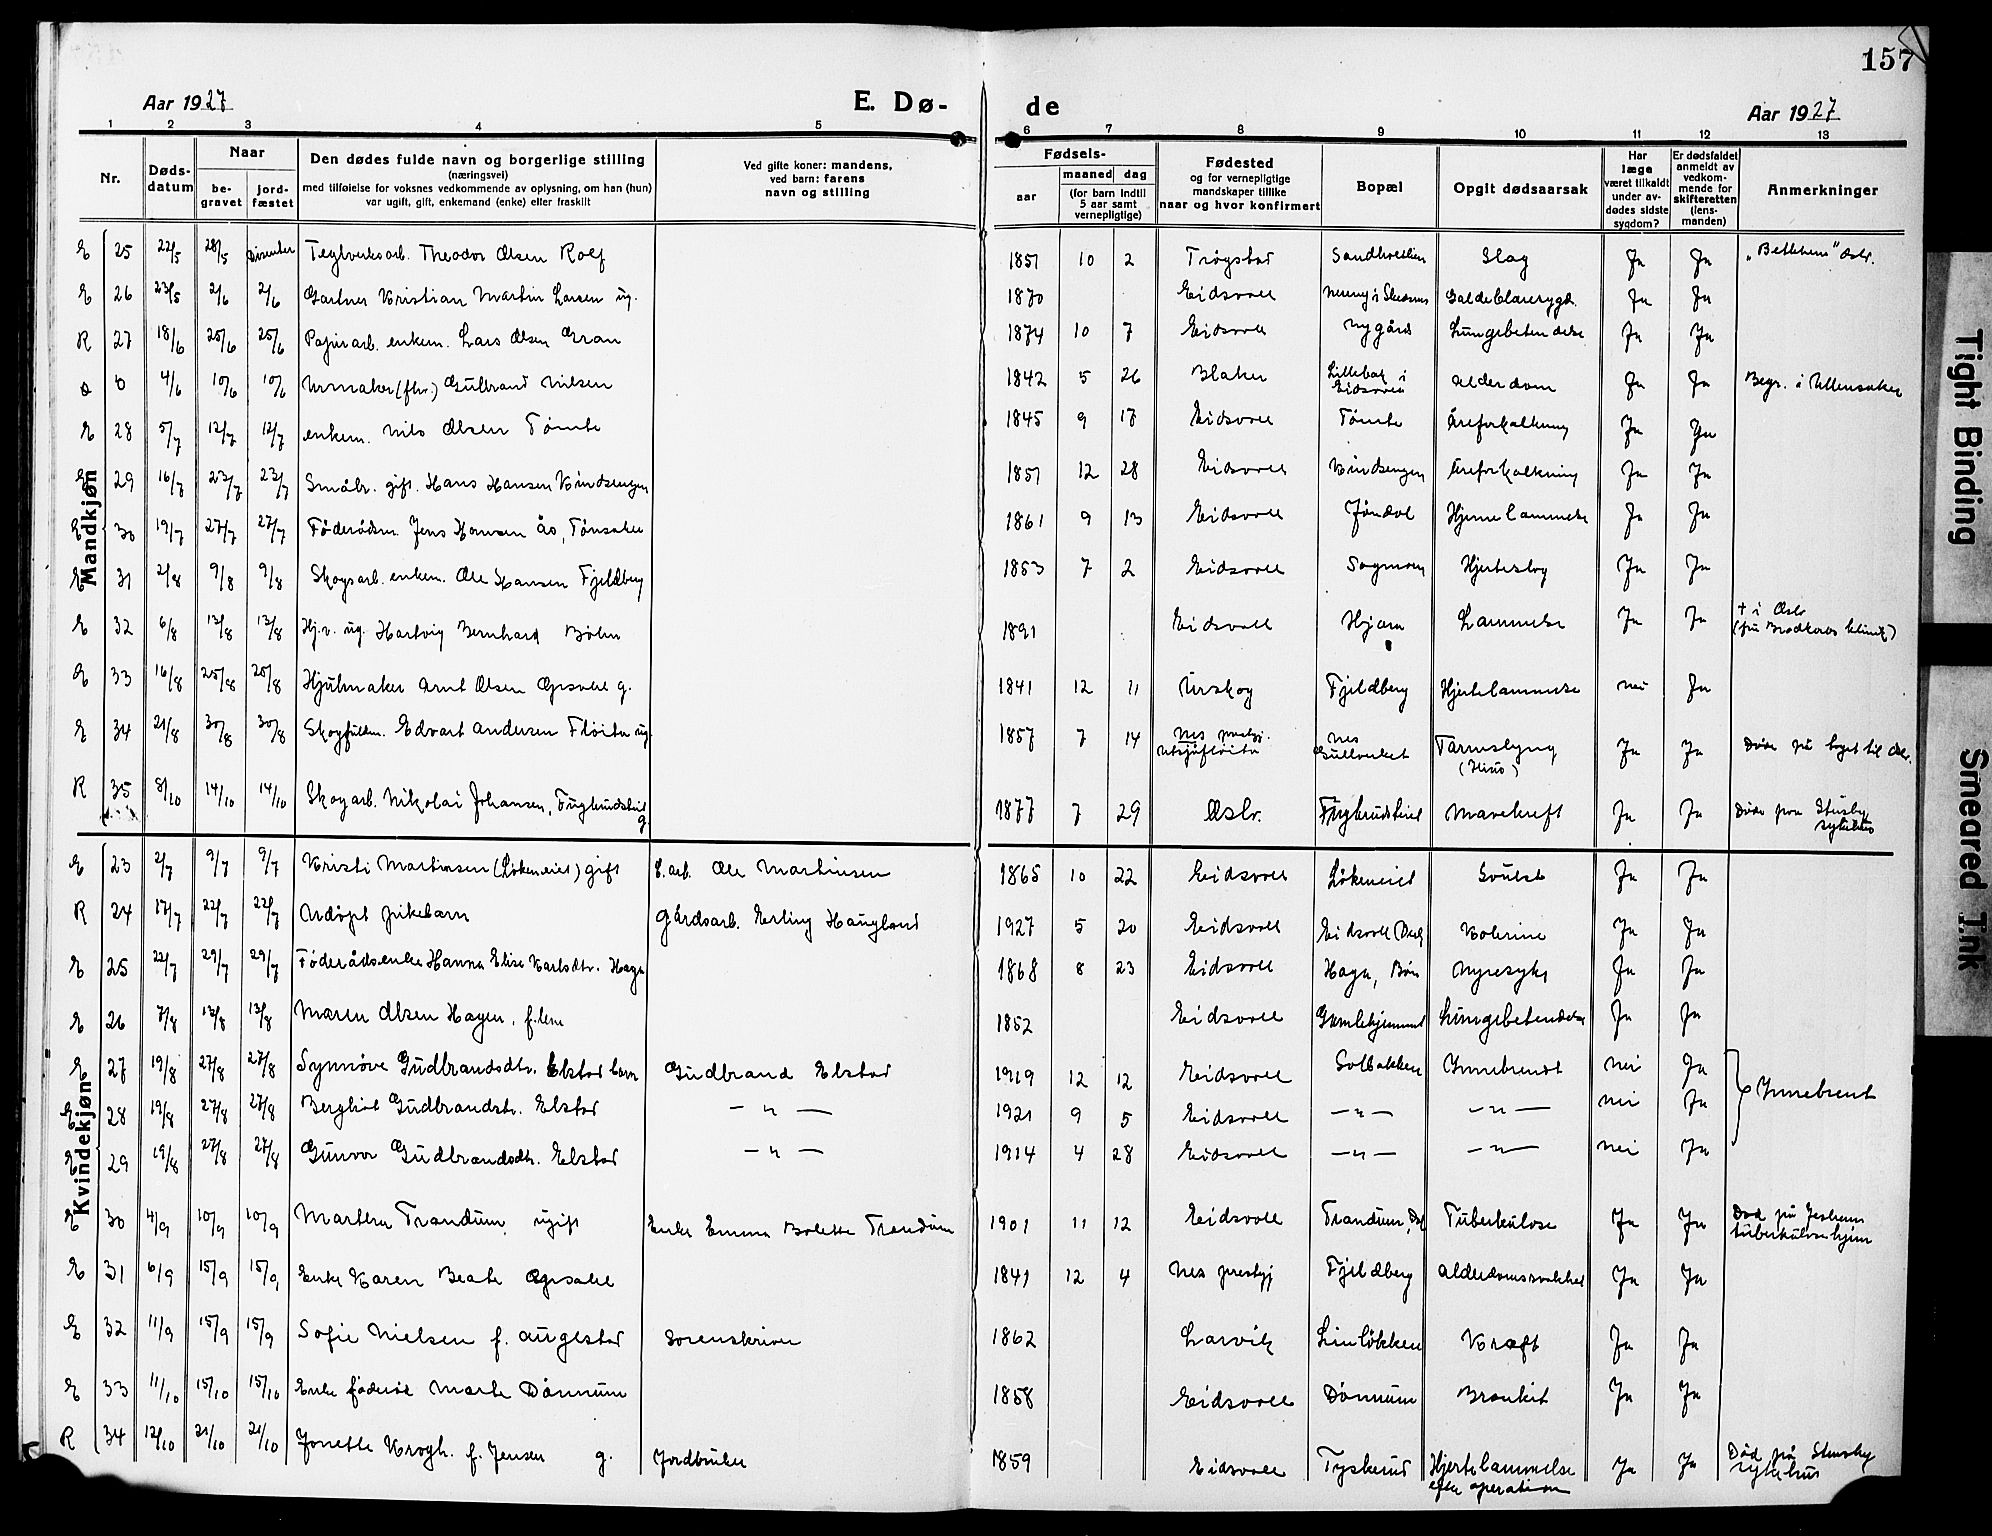 157
Aar 1927
E. Dø-
de
Aar 1927
1 2 3 4 5 6 7 8 9 10 11 12 13
Nr.
Døds-
datum
Naar
be-
gravet
jord-
fæstet
Den dødes fulde navn og borgerlige stilling
(næringsvei)
med tilføielse for voksnes vedkommende av oplysning, om han (hun)
var ugift, gift, enkemand (enke) eller fraskilt
Ved gifte koner: mandens,
ved barn: farens
navn og stilling
Fødsels-
aar
maaned dag
(for barn indtil
5 aar samt
vernepligtige)
Fødested
og for vernepligtige
mandskaper tillike
naar og hvor konfirmert
Bopæl
Opgit dødsaarsak
Har
læge
været tilkaldt
under av-
dødes sidste
sygdom?
Er dødsfaldet
anmeldt av
vedkom-
mende for
skifteretten
(lens-
manden)
Anmerkninger
Mandkjøn
E 25 22/5 28/5 Theodor Olsen Rolf 1851 10 2 Trøgstad Slag Ja Ja
E 26 23/5 2/6 2/6 Gartner Kristian Martin Larsen ug. 1870 Eidsvoll Ja Ja
R 27 18/6 25/6 25/6 Papirarb. enkem. Lars Olsen Gran 1874 10 7 Eidsvoll Nygård Lungebetendelse Ja Ja
0 4/6 10/6 10/6 Urmaker (fhv.) Gulbrand Nilsen 1842 5 26 Blaker Eidsvoll Alderdom Ja Ja Begr. i Ullensaker
E 28 5/7 12/7 12/7 enkem. Nils Olsen Tømte 1845 9 17 Eidsvoll Tømte Åreforkalkning Ja Ja
E 29 16/7 23/7 23/7 Småbr. gift. Hans Hansen Vindsengen 1851 12 28 Eidsvoll Vindsengen Åreforkalkning Ja Ja
E 30 19/7 27/7 27/7 Jens Hansen Ås, Tønsaker 1861 9 13 Eidsvoll Jøndal Hjernelammelse Ja Ja
E 31 2/8 9/8 9/8 Skogsarb. enkem. Ole Hansen Fjeldberg 1853 7 2 Eidsvoll Sagmoen Hjerteslag Ja Ja
E 32 6/8 13/8 13/8 ug. Hartvig Bernhard Bøhn 1891 Eidsvoll Hjera Lammelse Ja Ja + i Oslo
E 33 16/8 25/8 25/8 Hjulmaker Arnt Olsen Opsahl g. 1841 12 11 Urskog Fjeldberg Hjertelammelse nei Ja
E 34 21/8 30/8 30/8 Edvart Andersen Fløiten ug. 1857 7 14 Nes prestgj. Nes Gullverket Tarmslyng Ja Ja Døde på toget til Oslo.
R 35 8/10 14/10 14/10 Skogarb. Nikolai Johansen, Fuglerudsteie g. 1877 7 29 Oslo. Mavekreft Ja Ja Døde paa Stensby sykehus
Kvindekjøn
E 23 2/7 9/7 9/7 Kristi Martinsen (Løkeneiet) gift L. arb. Ole Martinsen 1865 10 22 Eidsvoll Løkeneiet Svulst Ja Ja
R 24 17/7 22/7 22/7 Udøpt pikebarn Gårdsarb. Erling Haugland 1927 5 20 Eidsvoll Kolerine Ja Ja
E 25 22/7 29/7 29/7 Føderådsenke Hanna Elise Karlsdtr. Haga 1868 8 23 Eidsvoll Haga, Bøn Nyresyke Ja Ja
E 26 7/8 13/8 13/8 Maren Olsen Hagen, 1852 Eidsvoll Gamlehjemmet Lungebetendelse Ja Ja
E 27 19/8 27/8 27/8 Synnøve Gudbrandsdtr. Elstad barn Gudbrand Elstad 1919 12 12 Eidsvoll Solbakken Innebrendt nei Ja Innebrent
E 28 19/8 27/8 27/8 Bergliot Gudbrandstr. Elstad — " — 1921 9 5 Eidsvoll — " — — " — nei Ja
E 29 19/8 27/8 27/8 Gunvor Gudbrandsdtr. Elstad — " — 1914 4 28 Eidsvoll — " — — " — nei Ja
E 30 4/9 10/9 10/9 Marthea Trandum, ugift Enke Emma Bolette Trandum 1901 11 12 Eidsvoll Trandum, Dal Tuberkulose Ja Ja Død på Jesheim tuberkulosehjem
E 31 6/9 15/9 15/9 Enke Karen Beate Opsahl 1841 12 4 Nes prestgj Fjeldberg Alderdomssvakhet Ja Ja
E 32 11/9 15/9 15/9 Sofie Nielsen f. Augestad Sorenskriver 1862 Larvik Linløkken Kræft Ja Ja
E 33 11/10 15/10 15/10 Enke føderåd Marte Dønnum 1858 Eidsvoll Dønnum Bronkit Ja Ja
R 34 12/10 21/10 21/10 Jonette Krogh. f. Jensen g. Jordbruker 1859 Eidsvoll Tyskerud Hjertelammelse efter operation Ja Ja Død på Stensby sykehus
Tight Binding
Smeared Ink